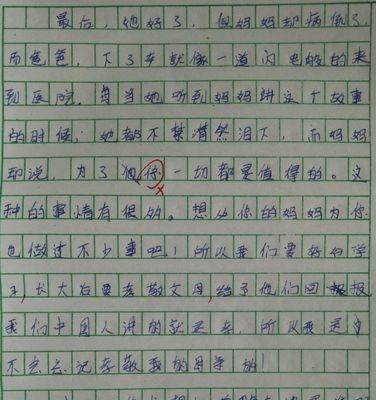 最后，她好了，但妈妈却病倒了，
而爸爸，下了车就像一道闪电般的来
到医院。每当她听到妈妈讲这个故事
的时候，她都不禁潸然泪下，而妈妈
却说，为了你一切都是值得的。这
种的事情有很多。想必你的妈妈为你
也做过不少事吧！所以我们要好好学
习，长大后要孝敬父母，给予他们回报
我们中国人讲的就是孝，所以我是
不会忘记孝敬我的母亲的！